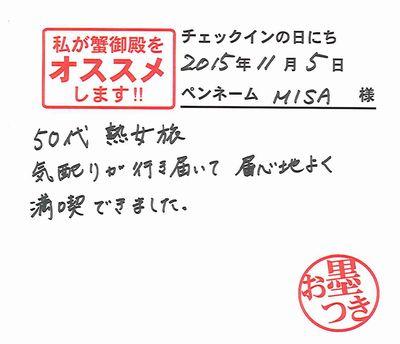 私が蟹御殿を
オススメ
します!!
チェックインの日にち
2015年11月5日
ペンネーム MISA 様
50代 熟女旅
気配りが行き届いて 居心地よく
満喫できました。
お墨つき